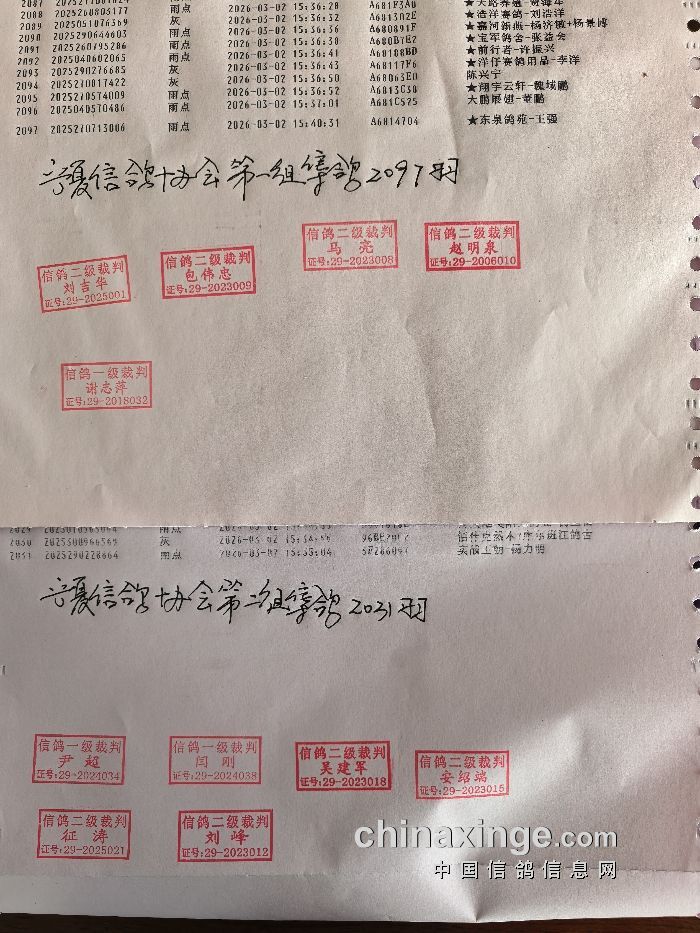 2089 2025051076369 灰 2026-03-02 15:36:29 A6813A2E ★浩洋赛鸽-刘浩洋
2090 2025290644603 雨点 2026-03-02 15:36:36 A680891F
2091 2025260795286 雨点 2026-03-02 15:36:38 ★宝军鸽舍-张益会
2092 2025040602065 雨点 2026-03-02 15:36:41 A68188BD ★前行者-许振兴
2093 2025290276685 灰 2026-03-02 15:36:43 A68117F6 ★洋仔赛鸽用品-李洋
2094 2025270017422 灰 2026-03-02 15:36:50 A68063E0 陈兴宁
2095 2025270574009 雨点 2026-03-02 15:36:52 A6813C38 ★翔宇云轩-魏域鹏
2096 2025040570486 雨点 2026-03-02 15:37:01 A681C525 大鹏展翅-董鹏
2097 2025270713006 雨点 2026-03-02 15:40:31 A6814704 ★东泉鸽苑-王强
宁夏信鸽协会第一组集鸽2097羽
信鸽二级裁判
刘吉华
证号:29-2025001
信鸽二级裁判
包伟忠
证号:29-2023009
信鸽二级裁判
马 亮
证号:29-2023008
信鸽二级裁判
赵明泉
证号:29-2006010
信鸽一级裁判
谢志萍
证号:29-2018032
2031 2025290228664 雨点 2026-03-02 15:35:04
宁夏信鸽协会第二组集鸽2031羽
信鸽一级裁判
尹 超
证号:29-2024034
信鸽一级裁判
闫 刚
证号:29-2024038
信鸽二级裁判
吴建军
证号:29-2023018
信鸽二级裁判
安绍端
证号:29-2023015
信鸽二级裁判
征 涛
证号:29-2025021
信鸽二级裁判
刘 峰
证号:29-2023012
chinaxinge.com
中国信鸽信息网